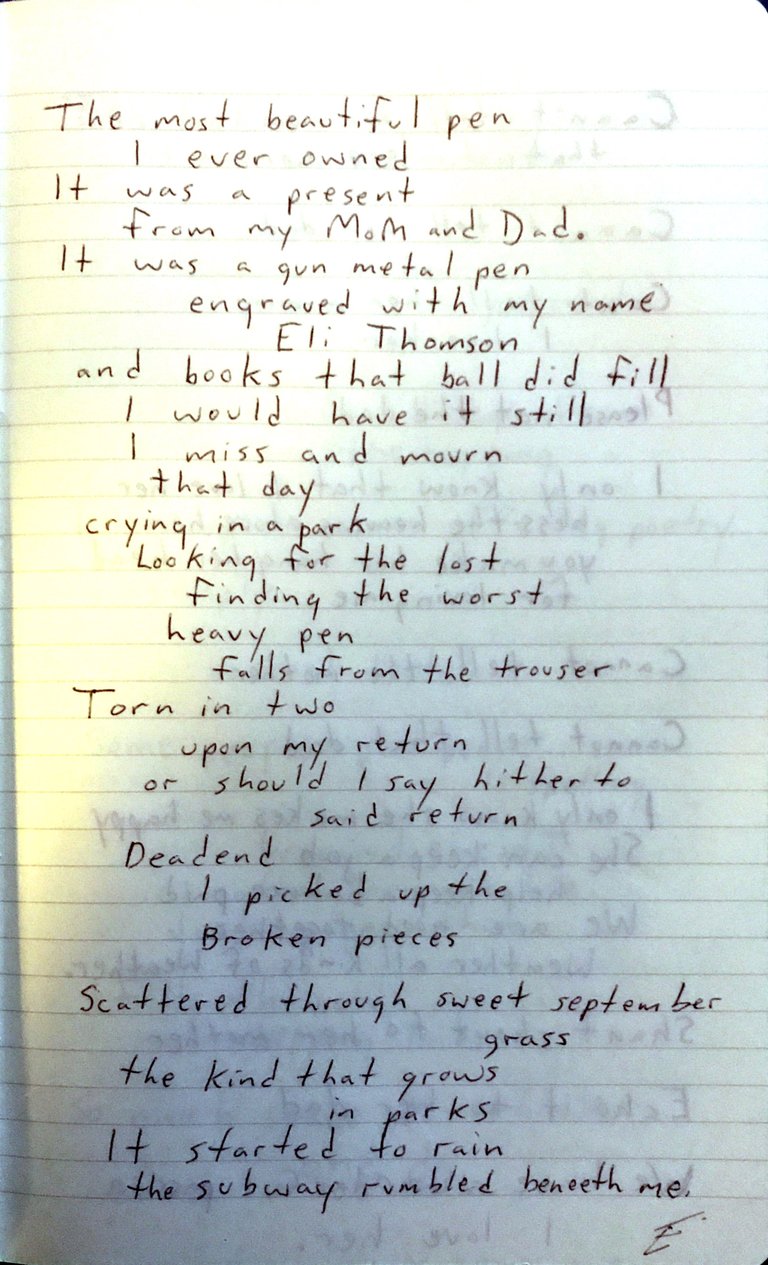 The most beautiful pen
I ever owned
It was a present
from my MoM and Dad.
It was a gun metal pen
engraved with my name
Eli Thomson
and books that ball did fill
I would have it still
I miss and mourn
that day
crying in a park
Looking for the lost
finding the worst
heavy pen
falls from the trouser
Torn in two
upon my return
or should I say hitherto
said return
Deadend
I picked up the
Broken pieces
Scattered through sweet september
grass
the kind that grows
in parks
It started to rain
the subway rumbled beneeth me.
E